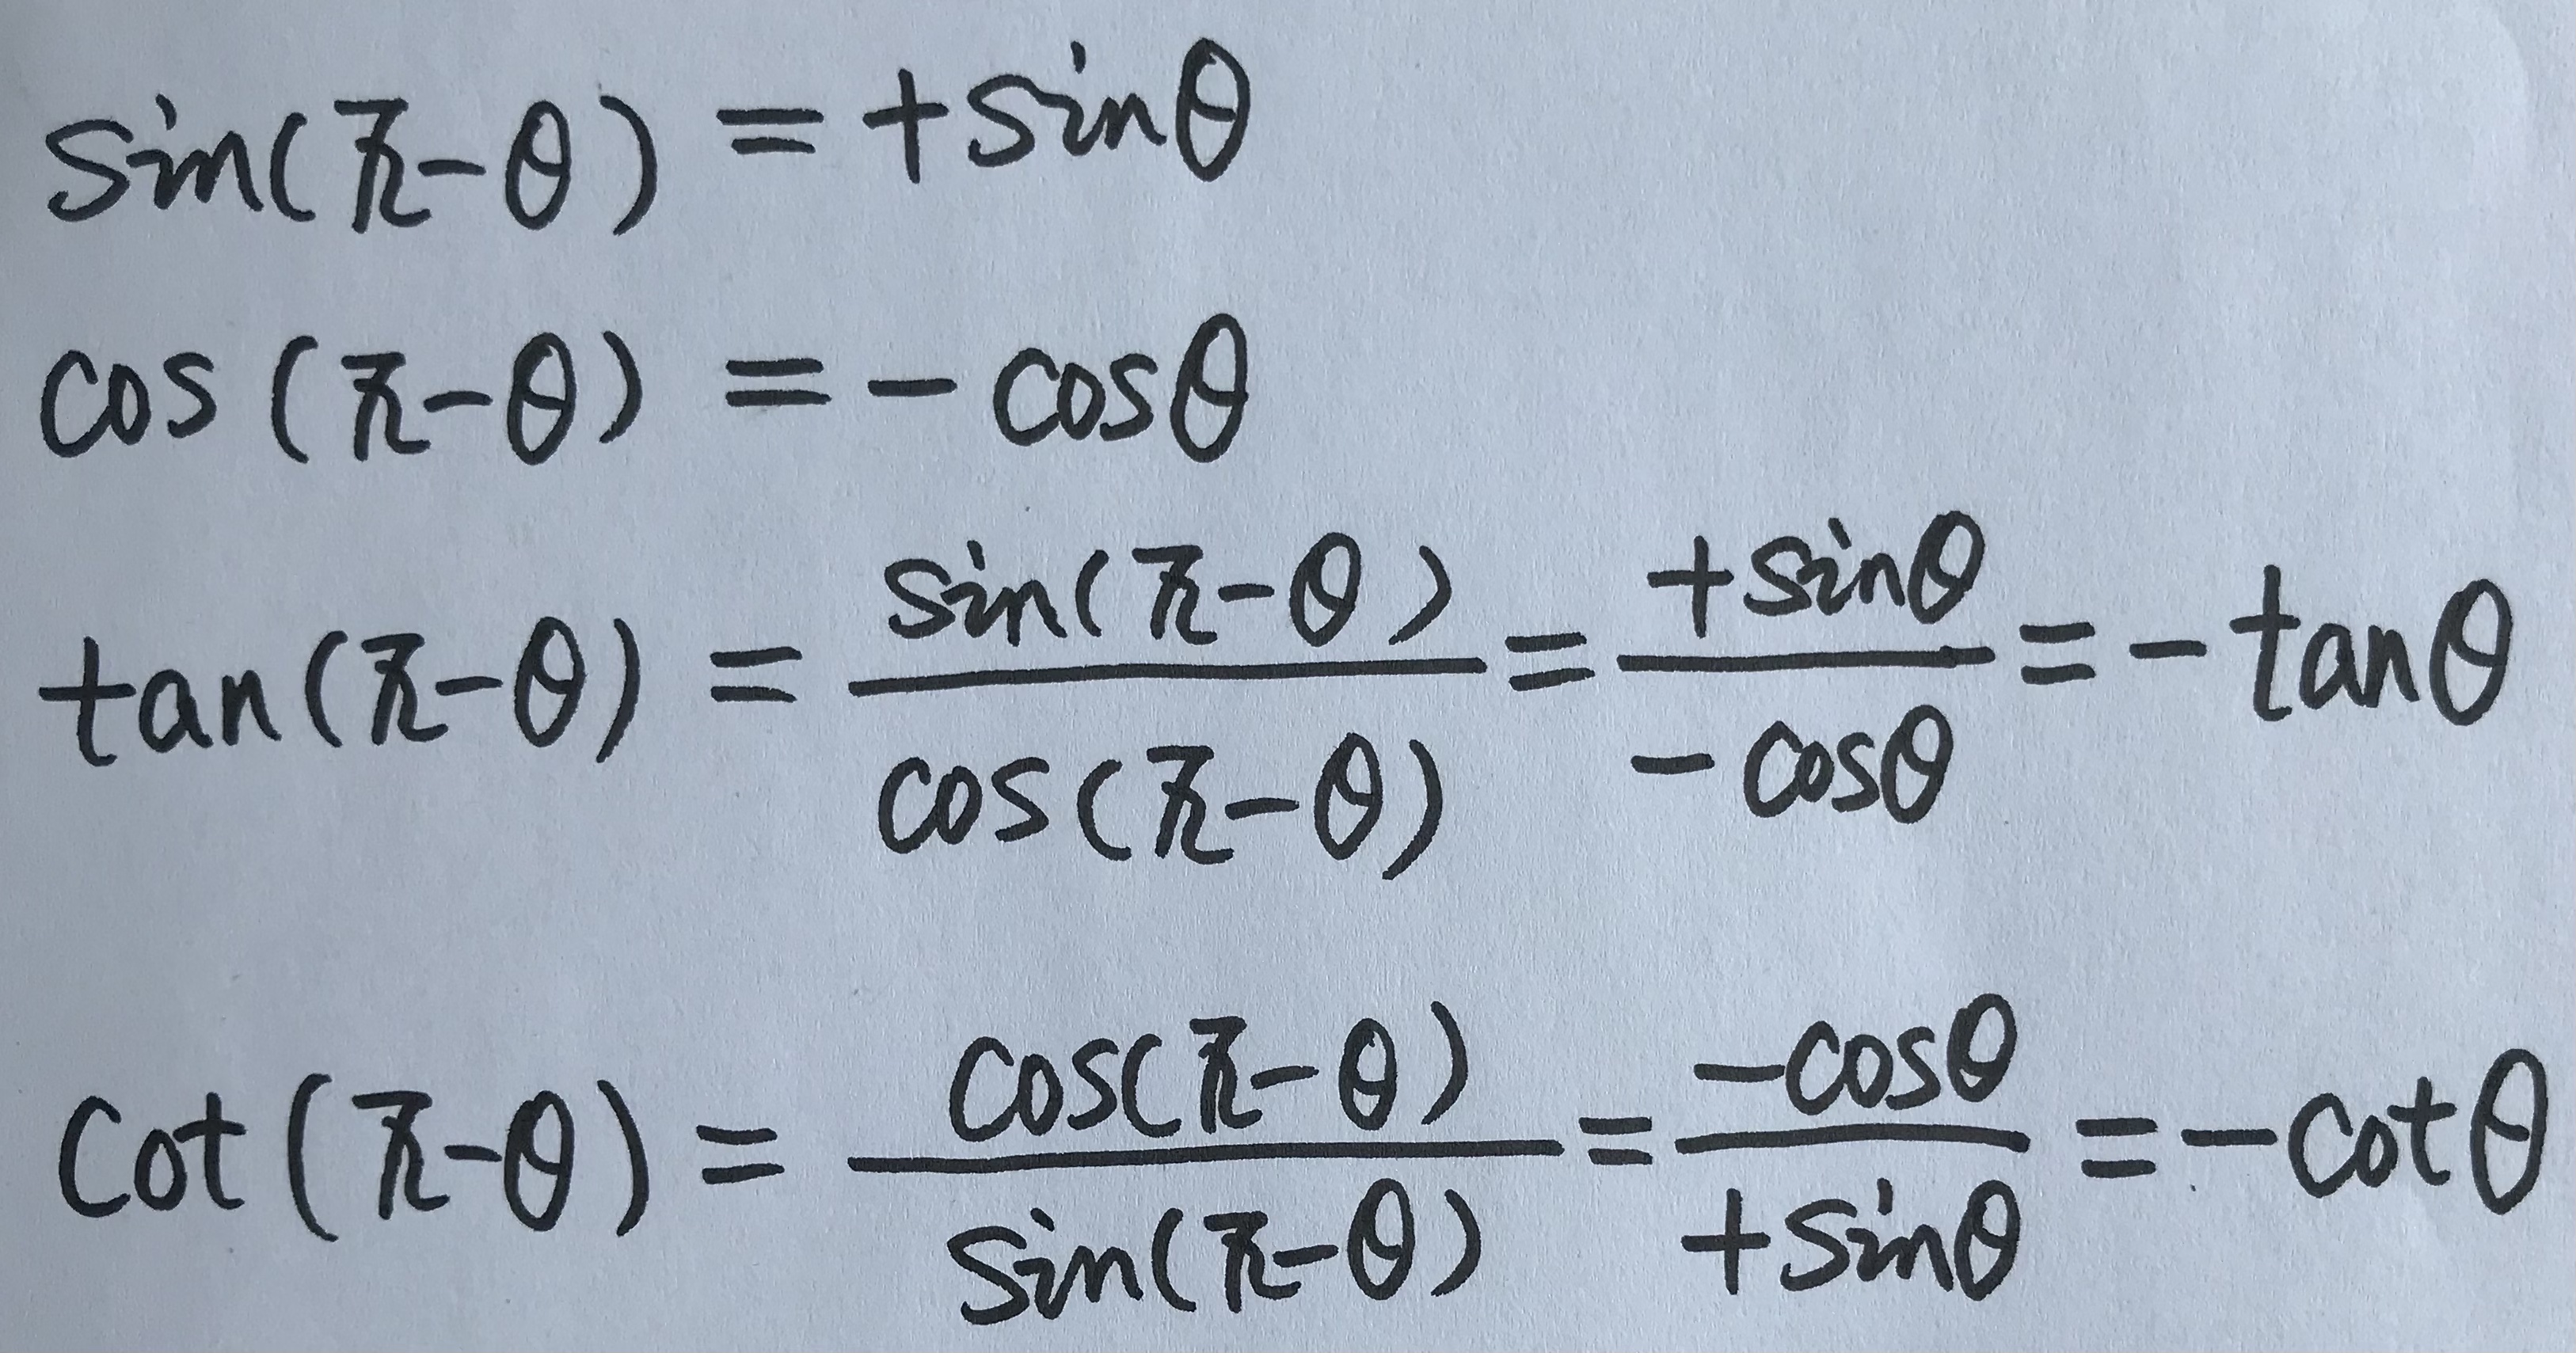 sin(π-θ) = +sinθ
cos(π-θ) = -cosθ
tan(π-θ) = sin(π-θ)/cos(π-θ) = +sinθ/-cosθ = -tanθ
cot(π-θ) = cos(π-θ)/sin(π-θ) = -cosθ/+sinθ = -cotθ